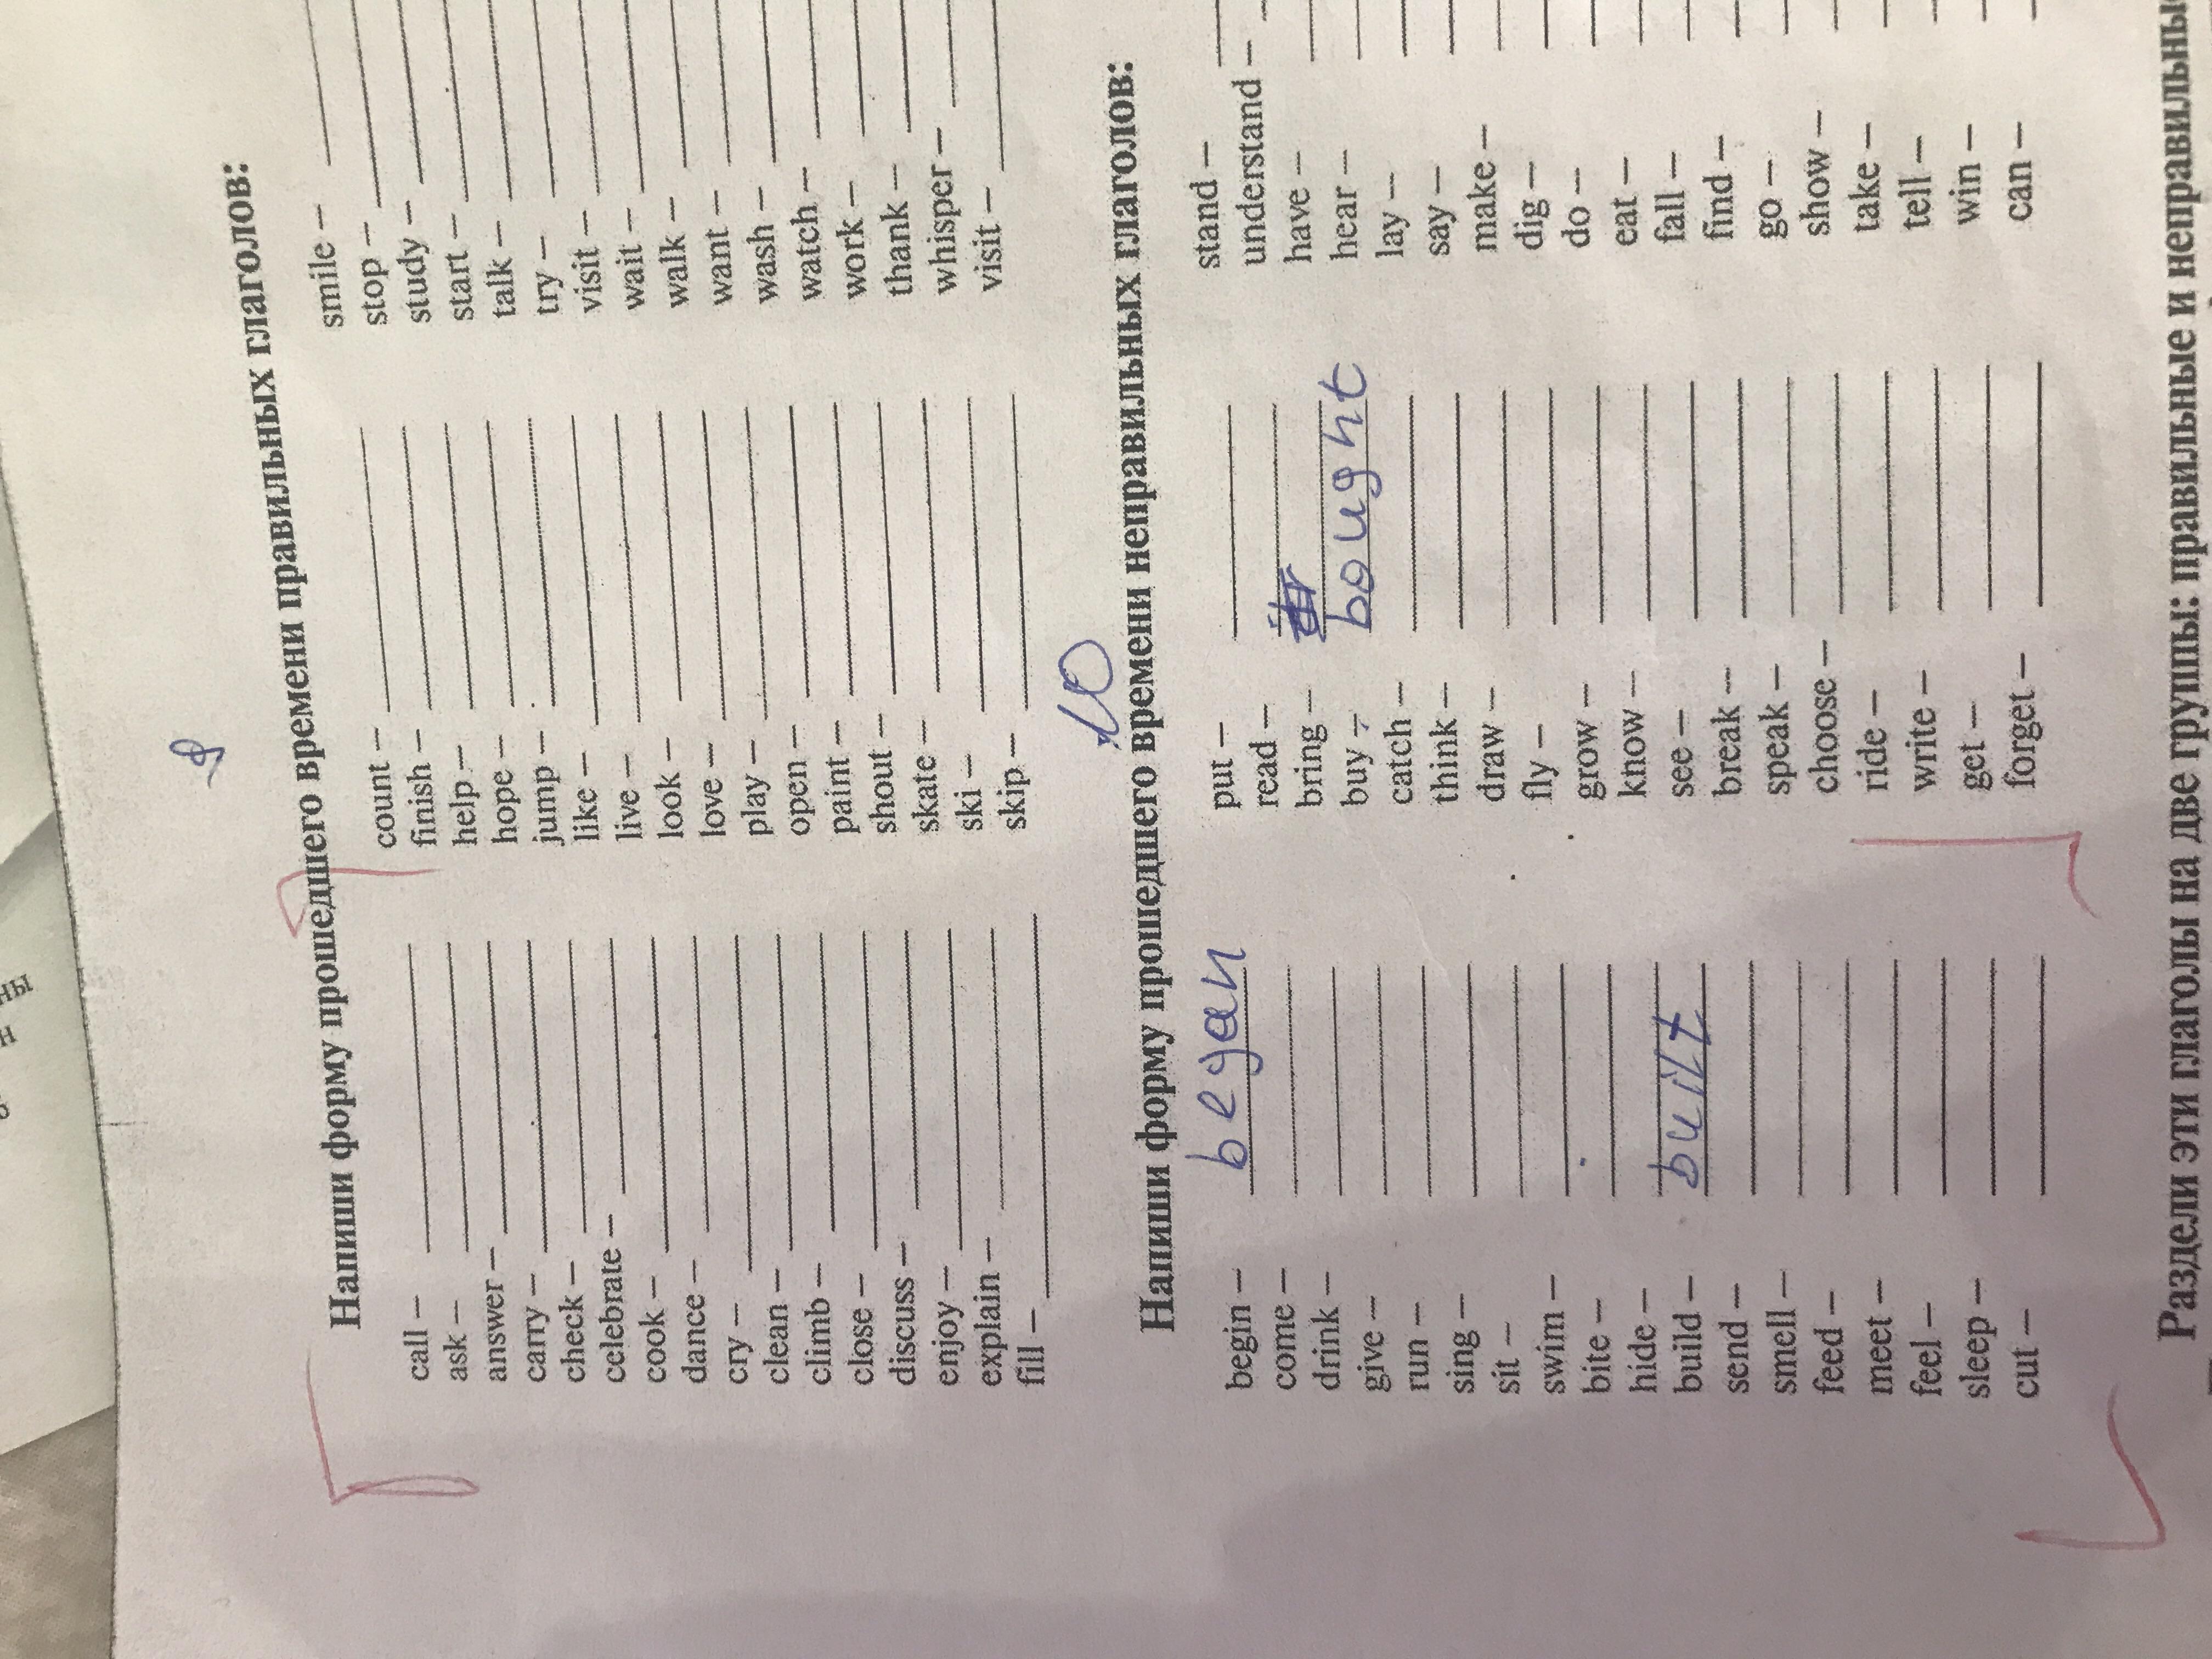 ны
Напиши форму прошедшего времени правильных глаголов:
call –
ask –
answer –
carry –
check –
celebrate –
cook –
dance –
cry –
clean –
climb –
close –
discuss –
enjoy –
explain –
fill –
count –
finish –
help –
hope –
jump –
like –
live –
look –
love –
play –
open –
paint –
shout –
skate –
ski –
skip –
smile –
stop –
study –
start –
talk –
try –
visit –
wait –
walk –
want –
wash –
watch –
work –
thank –
whisper –
visit –
10
Напиши форму прошедшего времени неправильных глаголов:
begin – began
come –
drink –
give –
run –
sing –
sit –
swim –
bite –
hide –
build – built
send –
smell –
feed –
meet –
feel –
sleep –
cut –
put –
read –
bring –
buy – bought
catch –
think –
draw –
fly –
grow –
know –
see –
break –
speak –
choose –
ride –
write –
get –
forget –
stand –
understand –
have –
hear –
lay –
say –
make –
dig –
do –
eat –
fall –
find –
go –
show –
take –
tell –
win –
can –
Раздели эти глаголы на две группы: правильные и неправильные